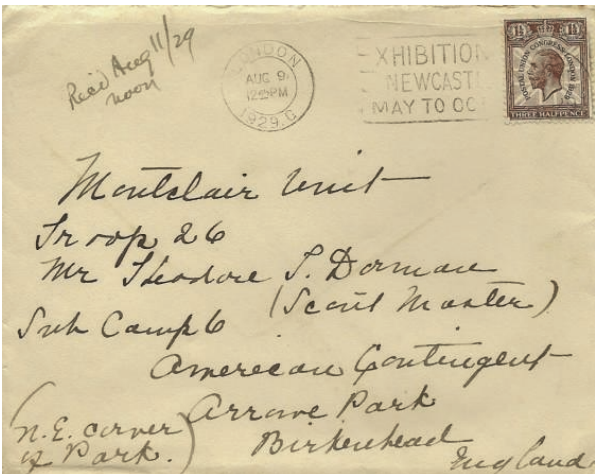 Rec'd Aug 11/29
noon
LONDON
AUG 9
12 PM
1929. C
EXHIBITION
NEWCAST
MAY TO OC
1½ 1½
POSTAL UNION CONGRESS LONDON 1929
THREE HALFPENCE
Montclair Unit
Troop 26
Mr Theodore S. Dorman
(Scout Master)
Sub Camp 6
American Contingent
Arrowe Park
(N.E. corner
of Park.)
Birkenhead
England